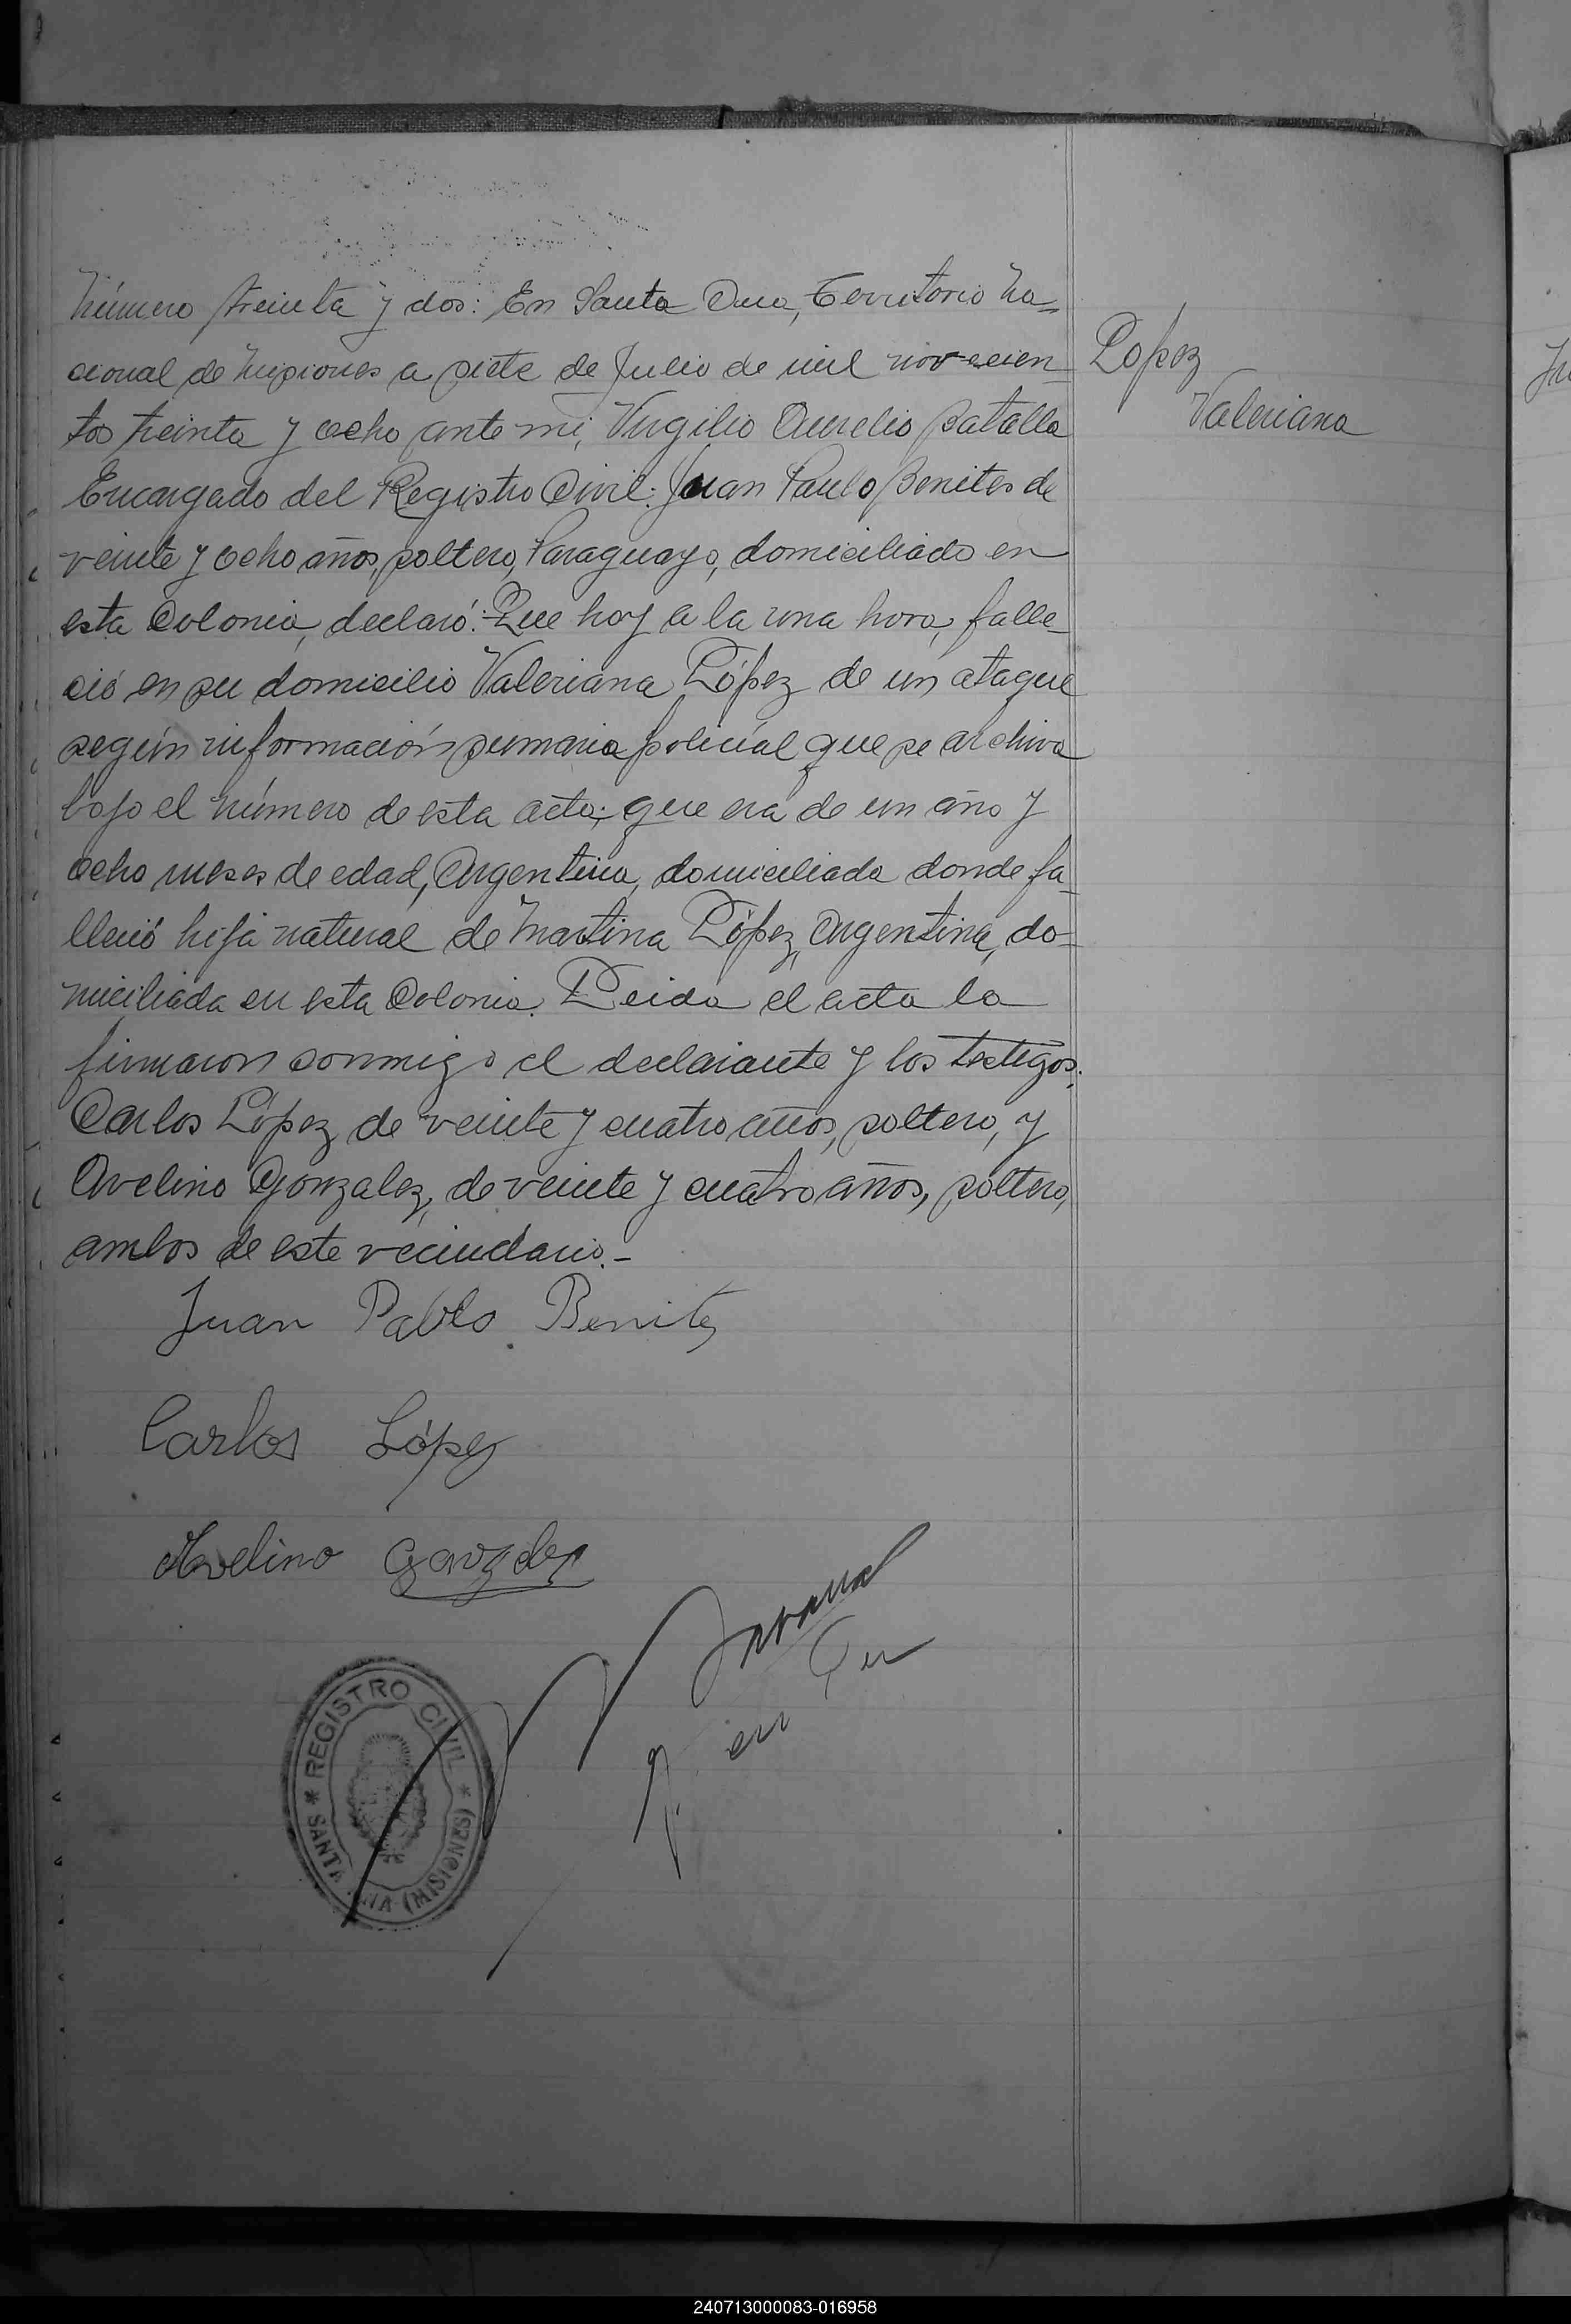 Número treinta y dos: En Santa Ana, Territorio Na-
cional de Misiones a siete de Julio de mil novecien-
tos treinta y ocho ante mi, Virgilio Aurelio
Encargado del Registro Civil: Juan Paulo Benites de
veinte y ocho años, soltero, Paraguayo, domiciliado en
esta Colonia, declaró: Que hoy a la una hora, falle-
ció en su domicilio Valeriana López de un ataque
según información sumaria policial que se archiva
bajo el número de esta acta; que era de un año y
ocho meses de edad, Argentina, domiciliada donde fa-
lleció hija natural de Martina López, Argentina, do-
miciliada en esta Colonia. Leida el acta la
firmaron conmigo el declarante y los testigos:
Carlos López de veinte y cuatro años, soltero, y
Avelino Gonzalez, de veinte y cuatro años, soltero,
ambos de este vecindario.-
Lopez
Valeriana
Juan Pablo Benitez
Carlos López
Avelino
REGISTRO CIVIL
SANTA ANA (MISIONES)
240713000083-016958